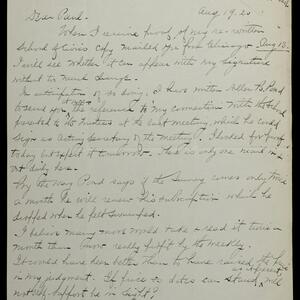 Aug 19. 20
Dear Paul.
When I receive proof of my re-written
School of Civics copy mailed you from Chicago Aug 18.
I will see whether it can appear with my signature
without too much change.
In anticipation of so doing, I have written Allen B. Pond
to send you off references to my connection with the School
presented to the trustees at the last meeting, which he could
sign as acting secretary of the meeting. I looked for proof
today but expect it tomorrow. There is only one mail in &
out daily here.
By the way Pond says if the Survey comes only twice
a month he will renew his subscription which he
dropped when he felt swamped.
I believe many more would take & read it twice a
month than now really profit by the weekly.
It would have been better than to have raised the price
in my judgment. If price & dates can stand as at present will
not self-support be in sight?